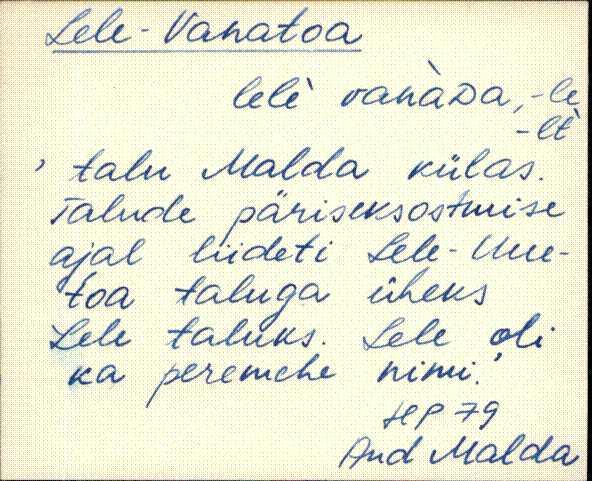 Lele-Vanatoa
lele̊ vanàDa, -le
-lt
' talu Malda külas.
Talude päriseksostmise
ajal liideti Lele-Uue-
toa taluga üheks
Lele taluks. Lele oli
ka peremehe nimi.'
HP 79
And Malda